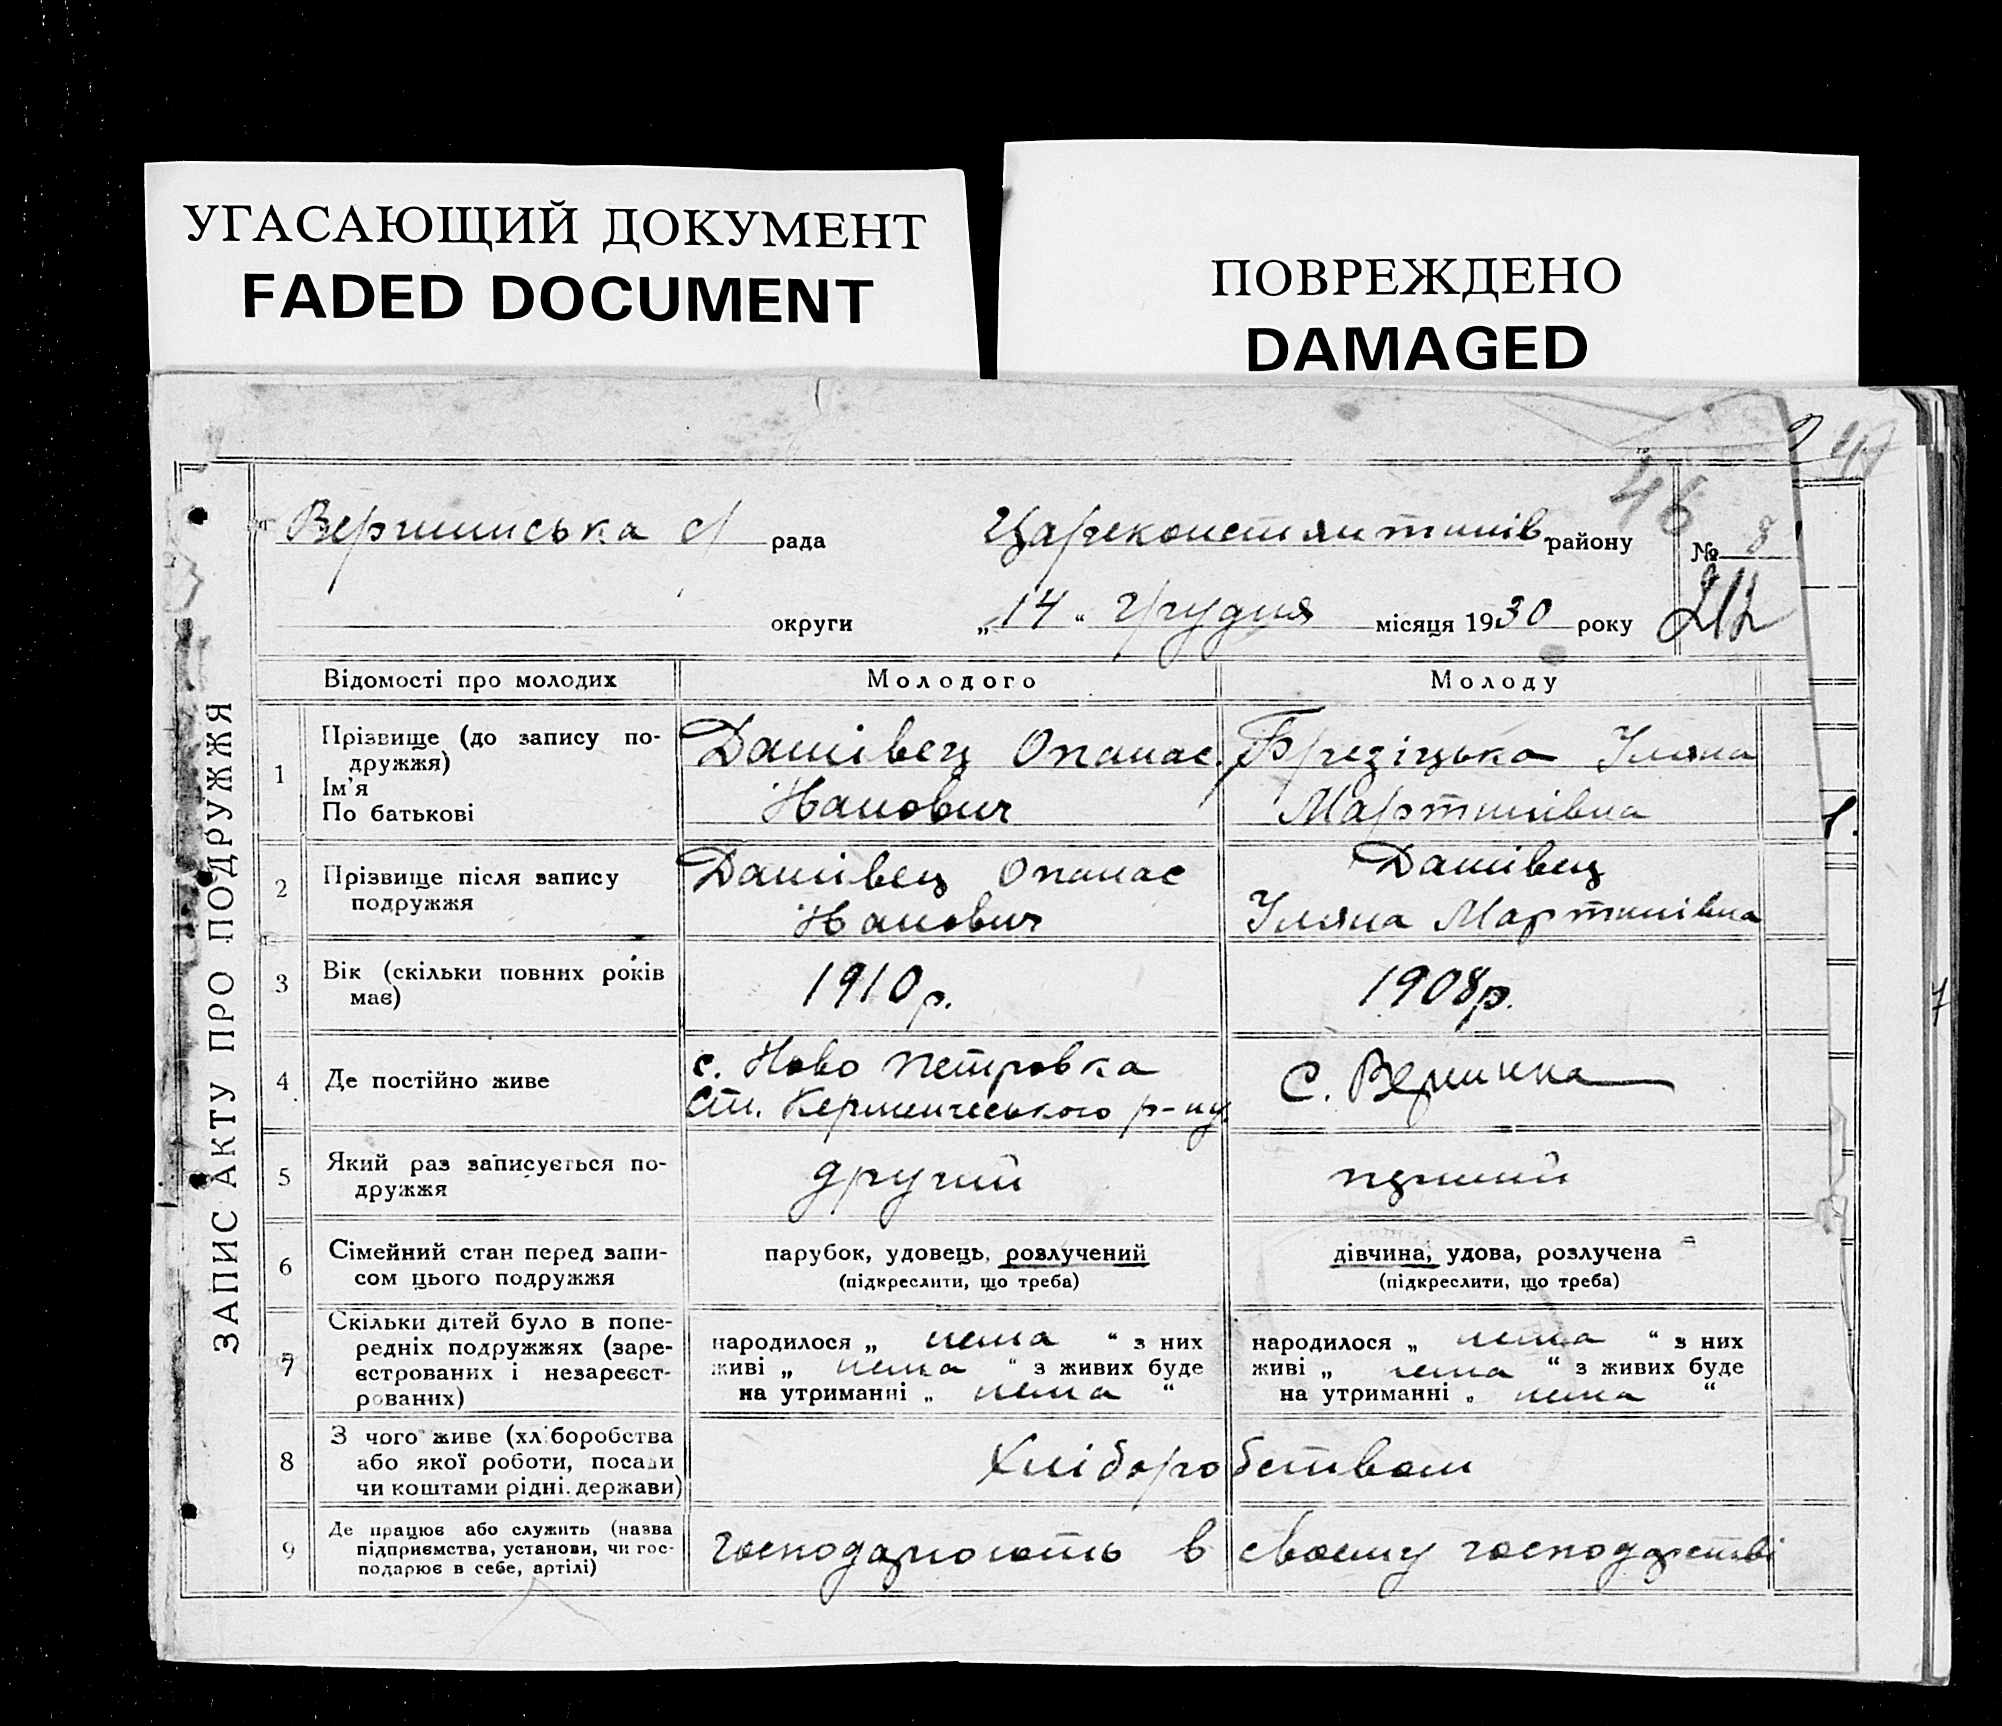 УГАСАЮЩИЙ ДОКУМЕНТ
FADED DOCUMENT
ПОВРЕЖДЕНО
DAMAGED
47
46
Вершинська с/ рада Цареконстянтинів району № 8
округи „14“ грудня місяця 1930 року 212
ЗАПИС АКТУ ПРО ПОДРУЖЖЯ
Відомості про молодих Молодого Молоду
1 Прізвище (до запису по-
дружжя)
Ім'я
По батькові
Дашівец Опанас
Іванович
Брезіцька Уляна
Мартинівна
2 Прізвище після запису
подружжя
Дашівец Опанас
Іванович
Дашівец
Уляна Мартинівна
3 Вік (скільки повних років
має)
1910р.
1908р.
4 Де постійно живе
с. Ново Петровка
Ст. Керменчеського р-ну.
С. Вершина
5 Який раз записується по-
дружжя
другий
перший
6 Сімейний стан перед запи-
сом цього подружжя
парубок, удовець, розлучений
(підкреслити, що треба)
дівчина, удова, розлучена
(підкреслити, що треба)
7 Скільки дітей було в попе-
редніх подружжях (заре-
єстрованих і незареєст-
рованих)
народилося „ нема “ з них
живі „ нема “ з живих буде
на утриманні „ нема “
народилося „ нема “ з них
живі „ нема “ з живих буде
на утриманні „ нема “
8 З чого живе (хліборобства
або якої роботи, посади
чи коштами рідні. держави)
Хліборобством
9 Де працює або служить (назва
підприємства, установи, чи гос-
подарює в себе, артілі)
господарюють в своєму господарстві